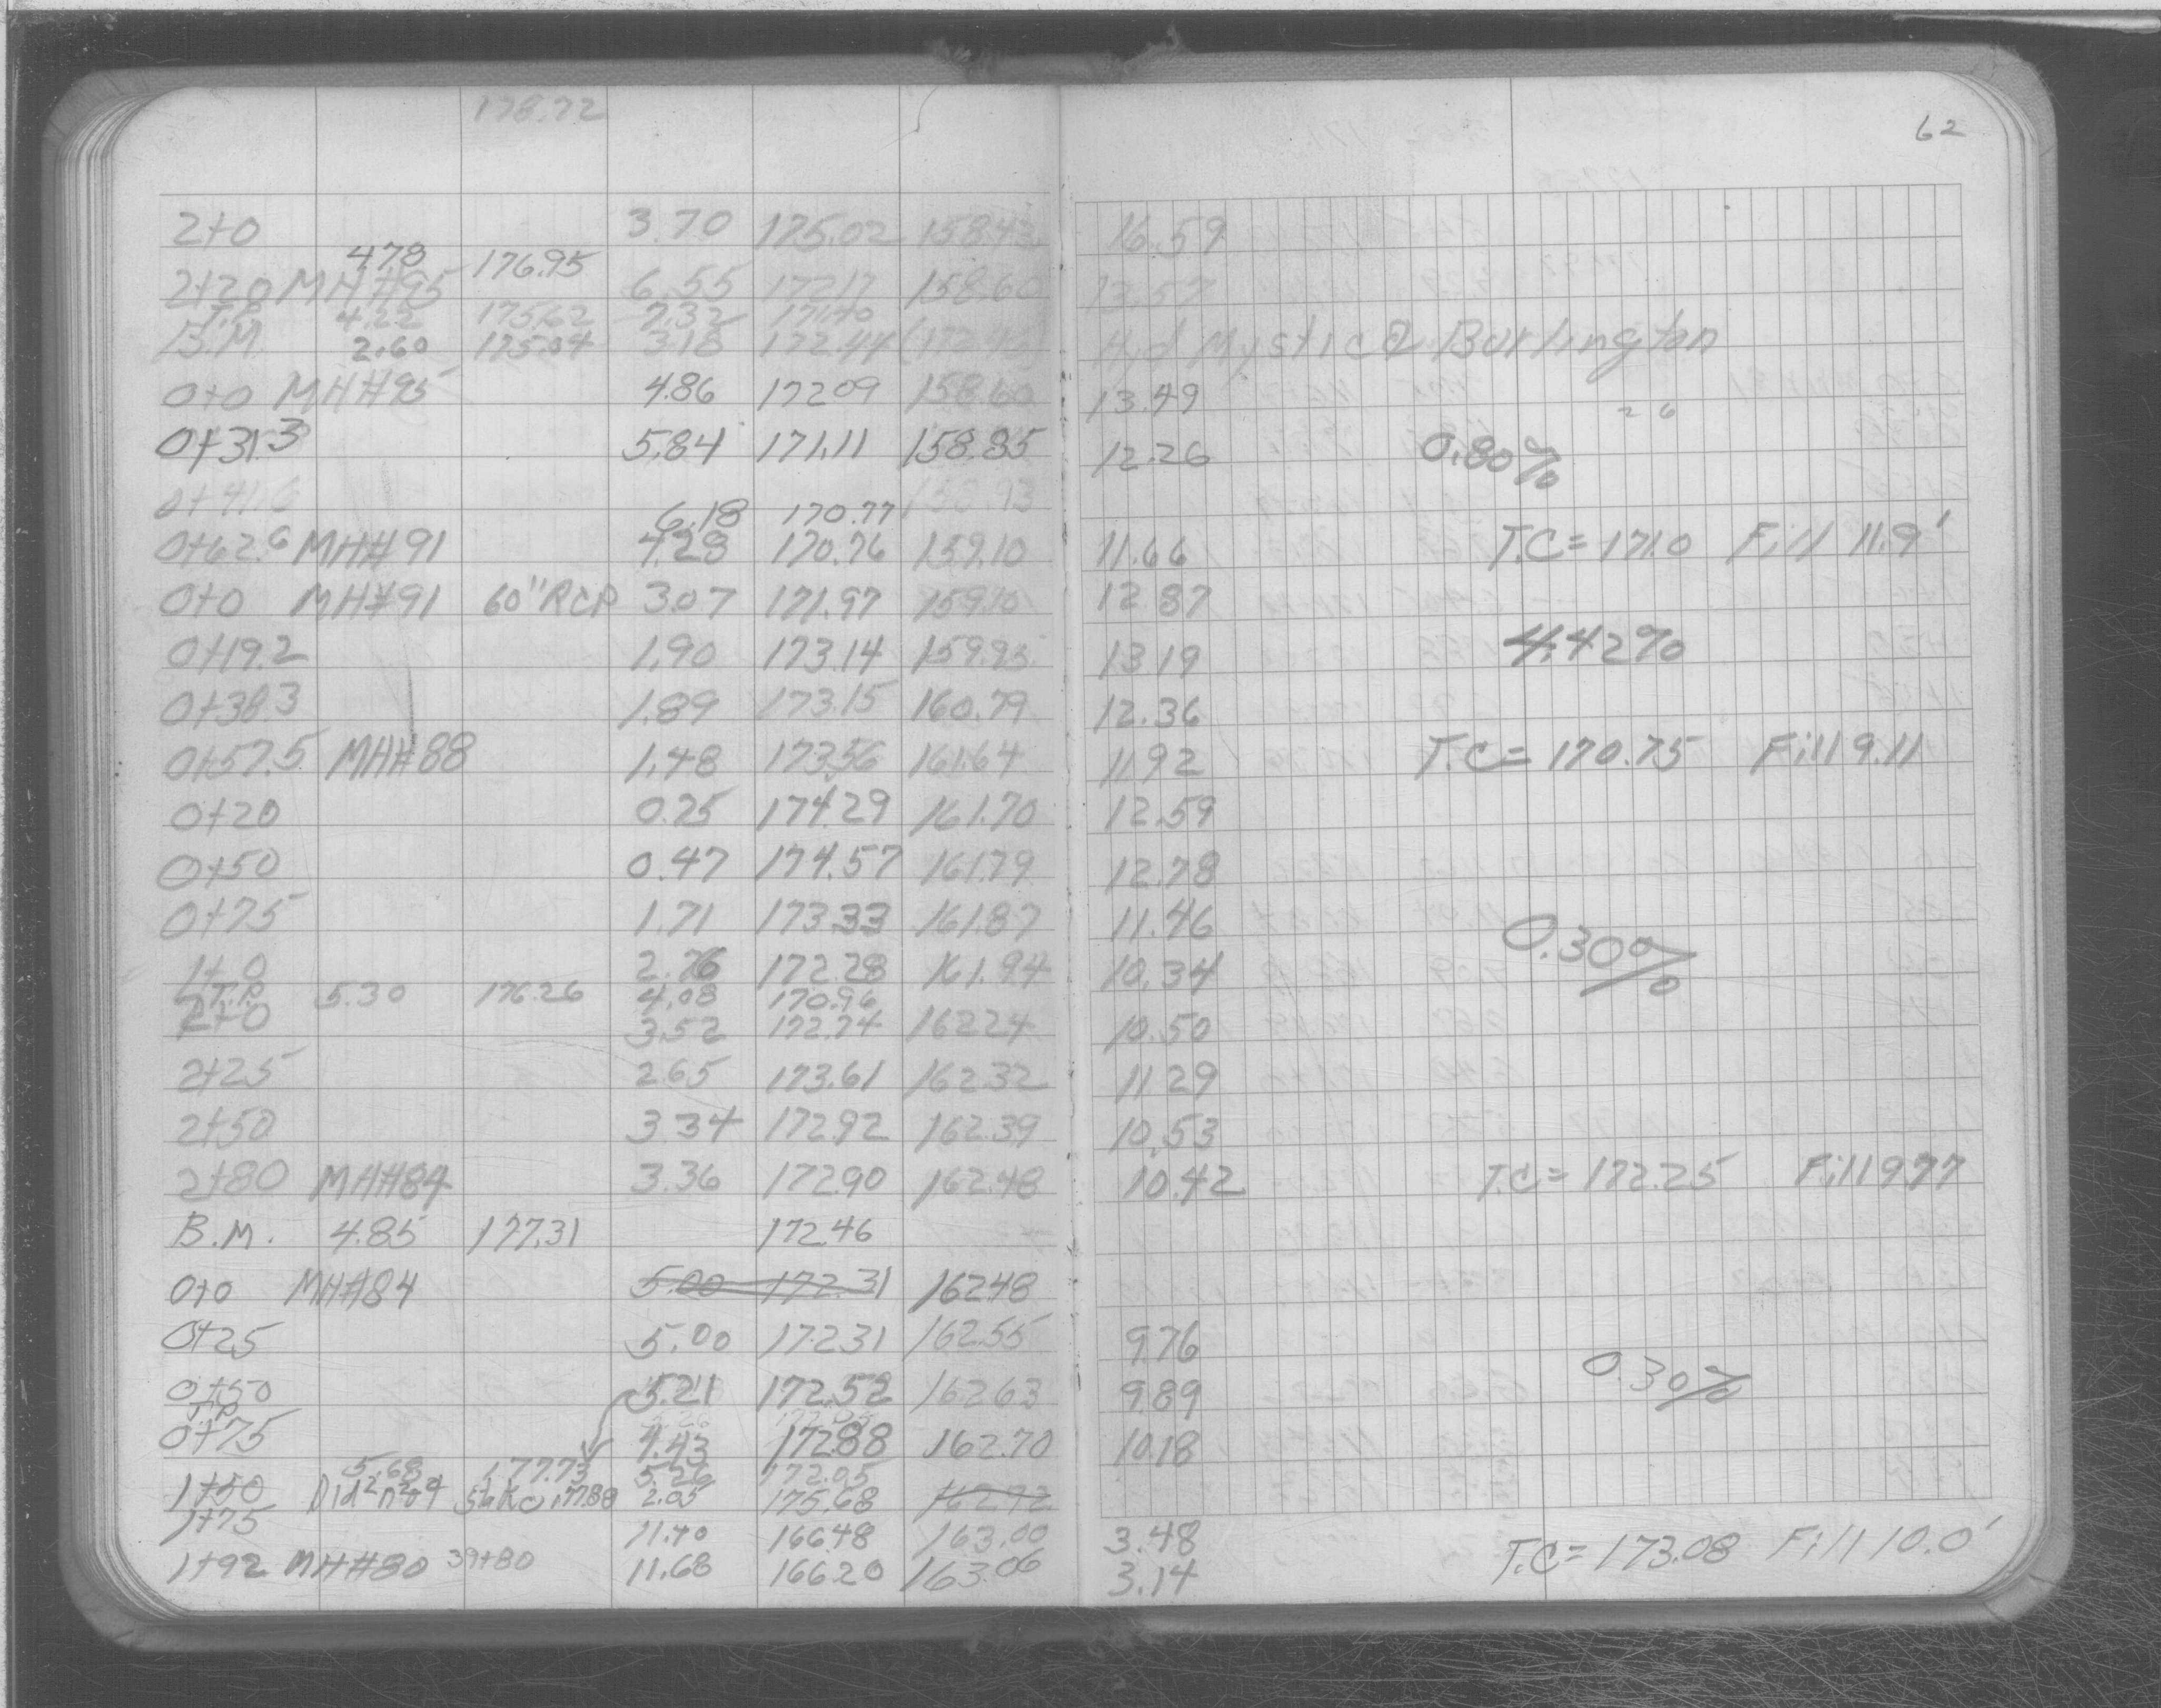 178.72
62
2+0 3.70 175.02 158.43 16.59
4.78 176.95
2+20 MH#95 6.55 172.17 158.60 13.57
T.P. 4.22 175.62 7.32 171.40
B.M 2.60 175.04 3.18 172.44 (172.46) Hyd Mystic & Burlington
0+0 MH#95 4.86 172.09 158.60 13.49
26
0+31.3 5.84 171.11 158.85 12.26 0.80%
0+41.6 158.93
6.18 170.77
0+62.6 MH#91 4.28 170.76 159.10 11.66 T.C = 171.0 Fill 11.9'
0+0 MH#91 60" RCP 3.07 171.97 159.10 12.87
0+19.2 1.90 173.14 159.95 13.19 4.42%
0+38.3 1.89 173.15 160.79 12.36
0+57.5 MH#88 1.48 173.56 161.64 11.92 T.C = 170.75 Fill 9.11
0+20 0.75 174.29 161.70 12.59
0+50 0.47 174.57 161.79 12.78
0+75 1.71 173.33 161.87 11.46
1+0 2.76 172.28 161.94 10.34 0.30%
T.P. 5.30 176.26 4.08 170.96
2+0 3.52 172.74 162.24 10.50
2+25 2.65 173.61 162.32 11.29
2+50 3.34 172.92 162.39 10.53
2+80 MH#84 3.36 172.90 162.48 10.42 T.C = 172.25 Fill 9.77
B.M. 4.85 177.31 172.46
0+0 MH#84 5.00 172.31 162.48
0+25 5.00 172.31 162.55 9.76
0+50 5.21 172.52 162.63 9.89 0.30%
T.P.
0+75 4.43 172.88 162.70 10.18
5.68 177.73 5.26 172.05
1+50 Did not stake 177.88 2.05 175.68 162.92
1+75 11.40 166.48 163.00 3.48
1+92 MH#80 39+80 11.68 166.20 163.06 3.14 T.C = 173.08 Fill 10.0'